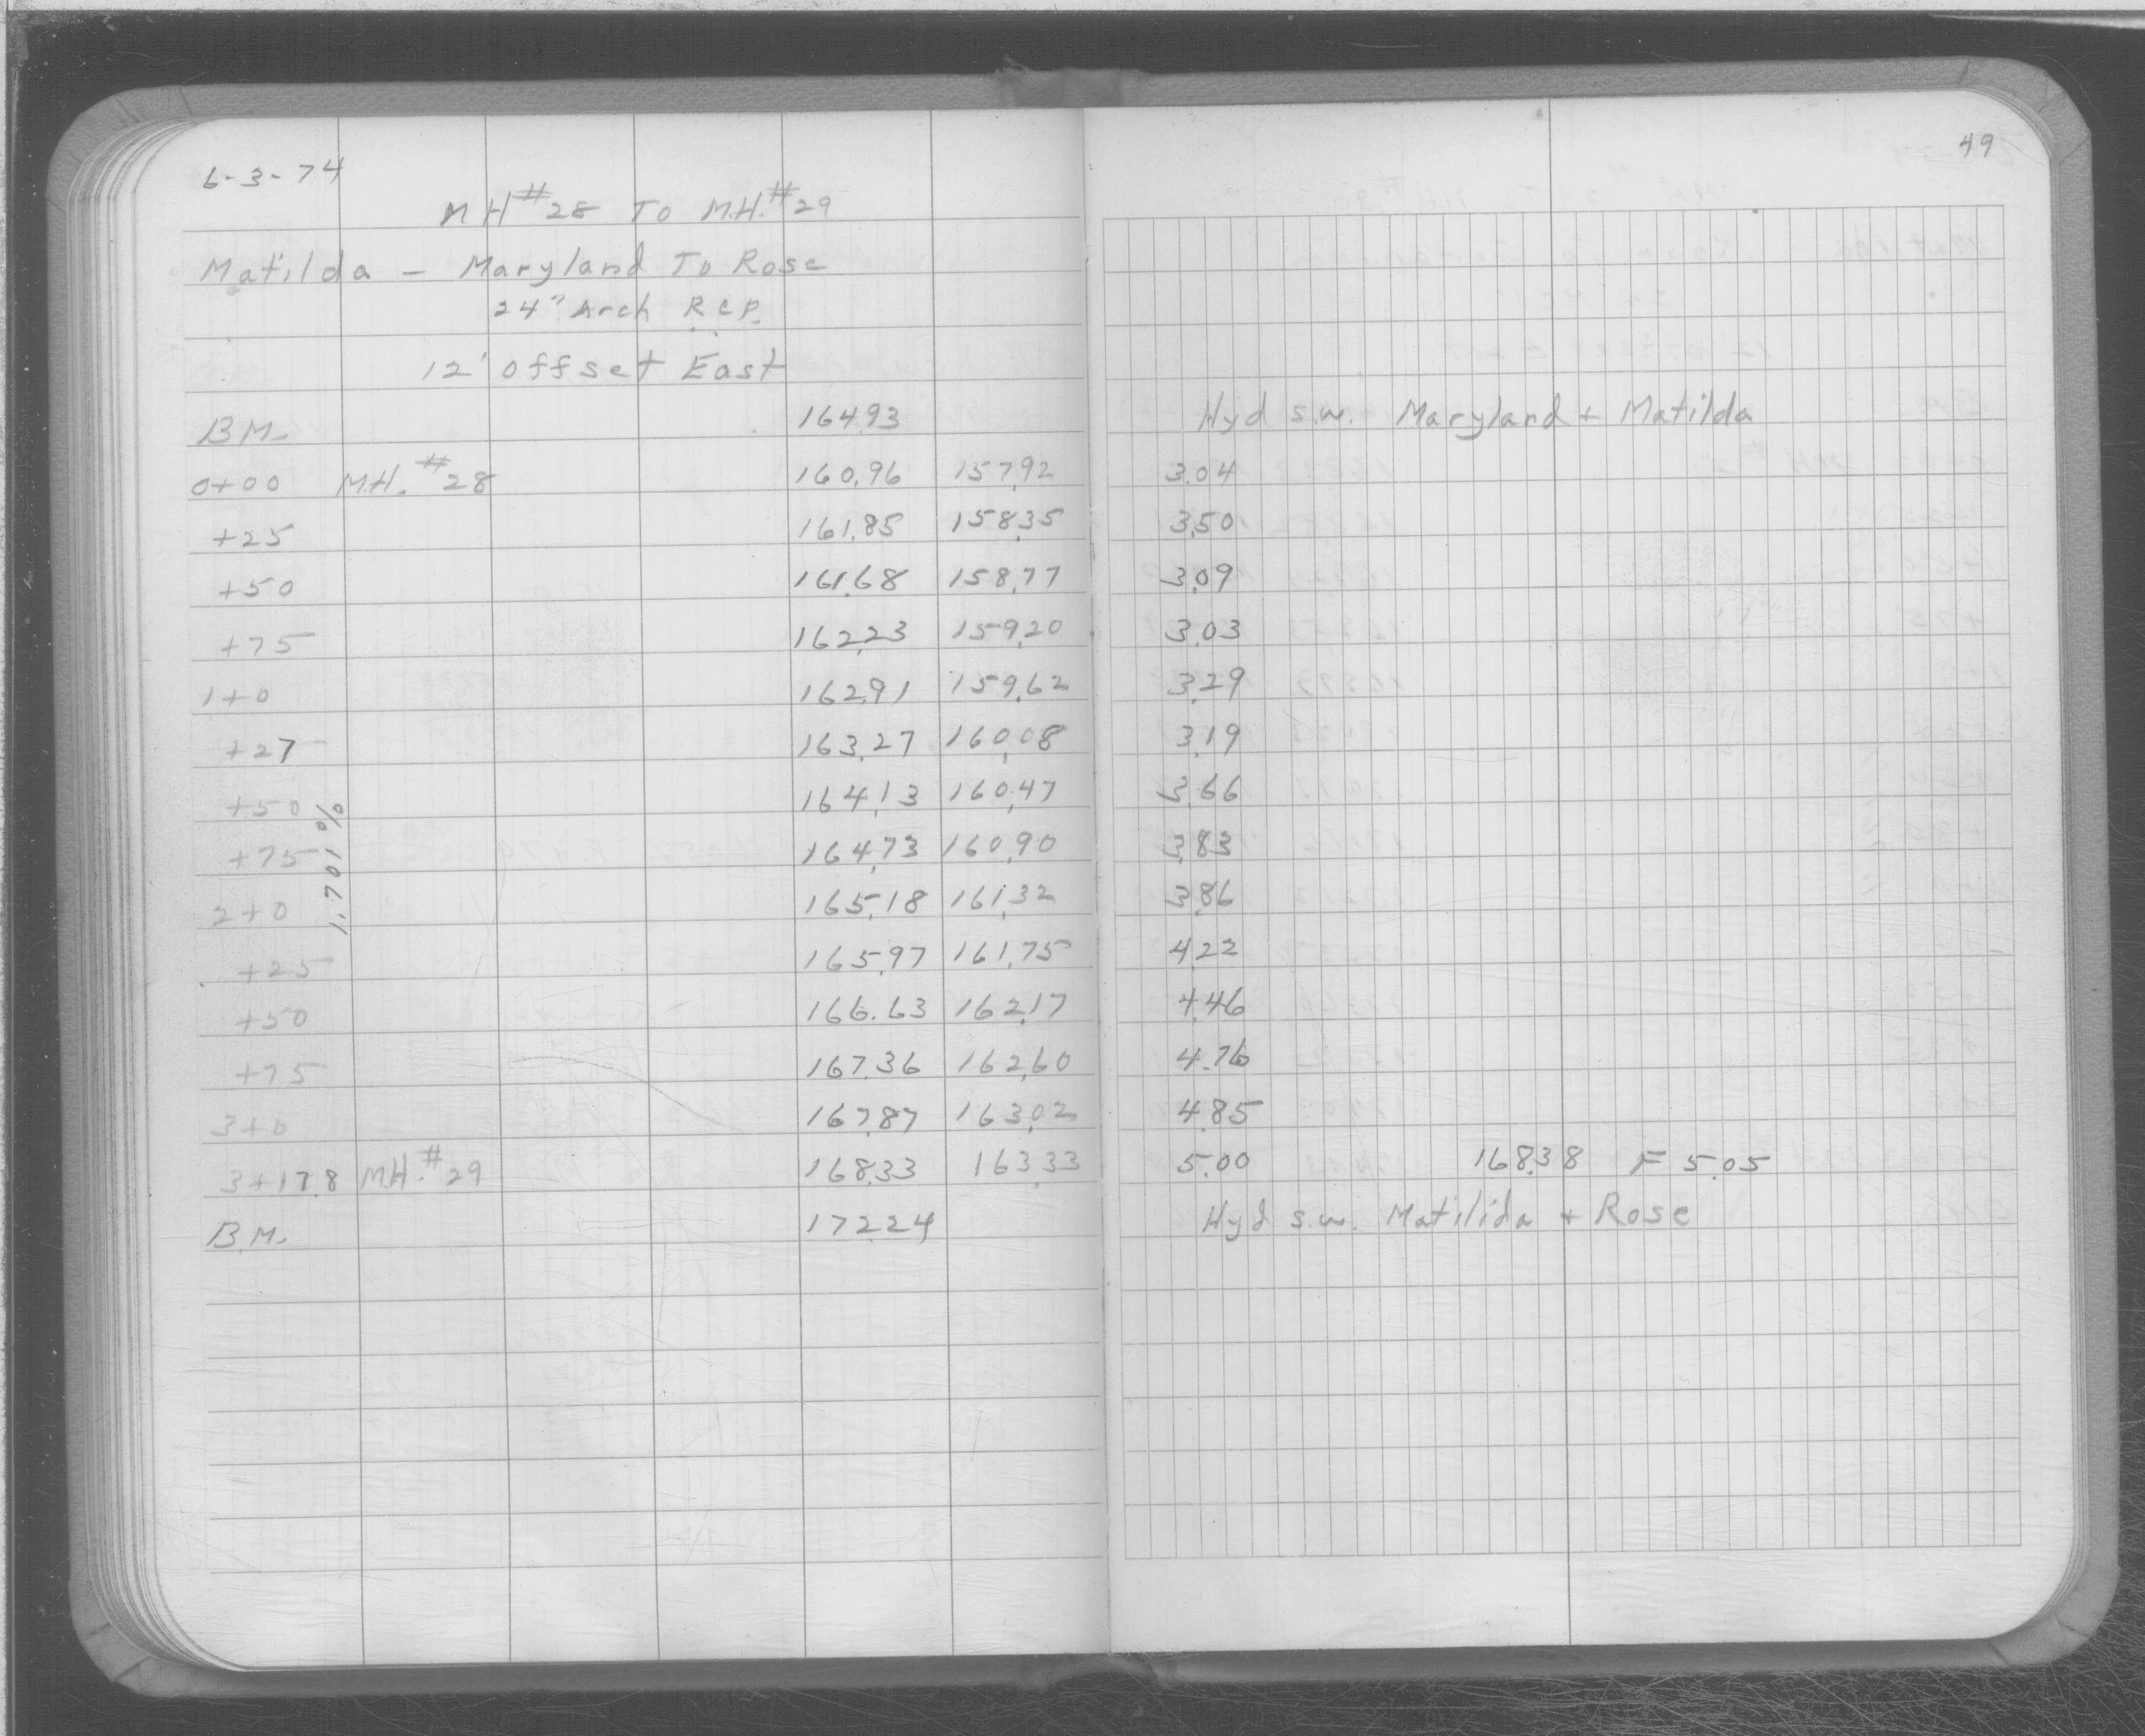 49
6-3-74
MH #28 To M.H. #29
Matilda - Maryland To Rose
24" Arch R.C.P.
12' offset East
B.M. 164.93 Hyd s.w. Maryland + Matilda
0+00 M.H. #28 160.96 157.92 3.04
+25 161.85 158.35 3.50
+50 161.68 158.77 3.09
+75 162.23 159.20 3.03
1+0 162.91 159.62 3.29
+27 163.27 160.08 3.19
+50 164.13 160.47 3.66
+75 164.73 160.90 3.83
1.701%
2+0 165.18 161.32 3.86
+25 165.97 161.75 4.22
+50 166.63 162.17 4.46
+75 167.36 162.60 4.76
3+0 167.87 163.02 4.85
3+17.8 M.H. #29 168.33 163.33 5.00 168.38 F 5.05
B.M. 172.24 Hyd s.w. Matilida + Rose